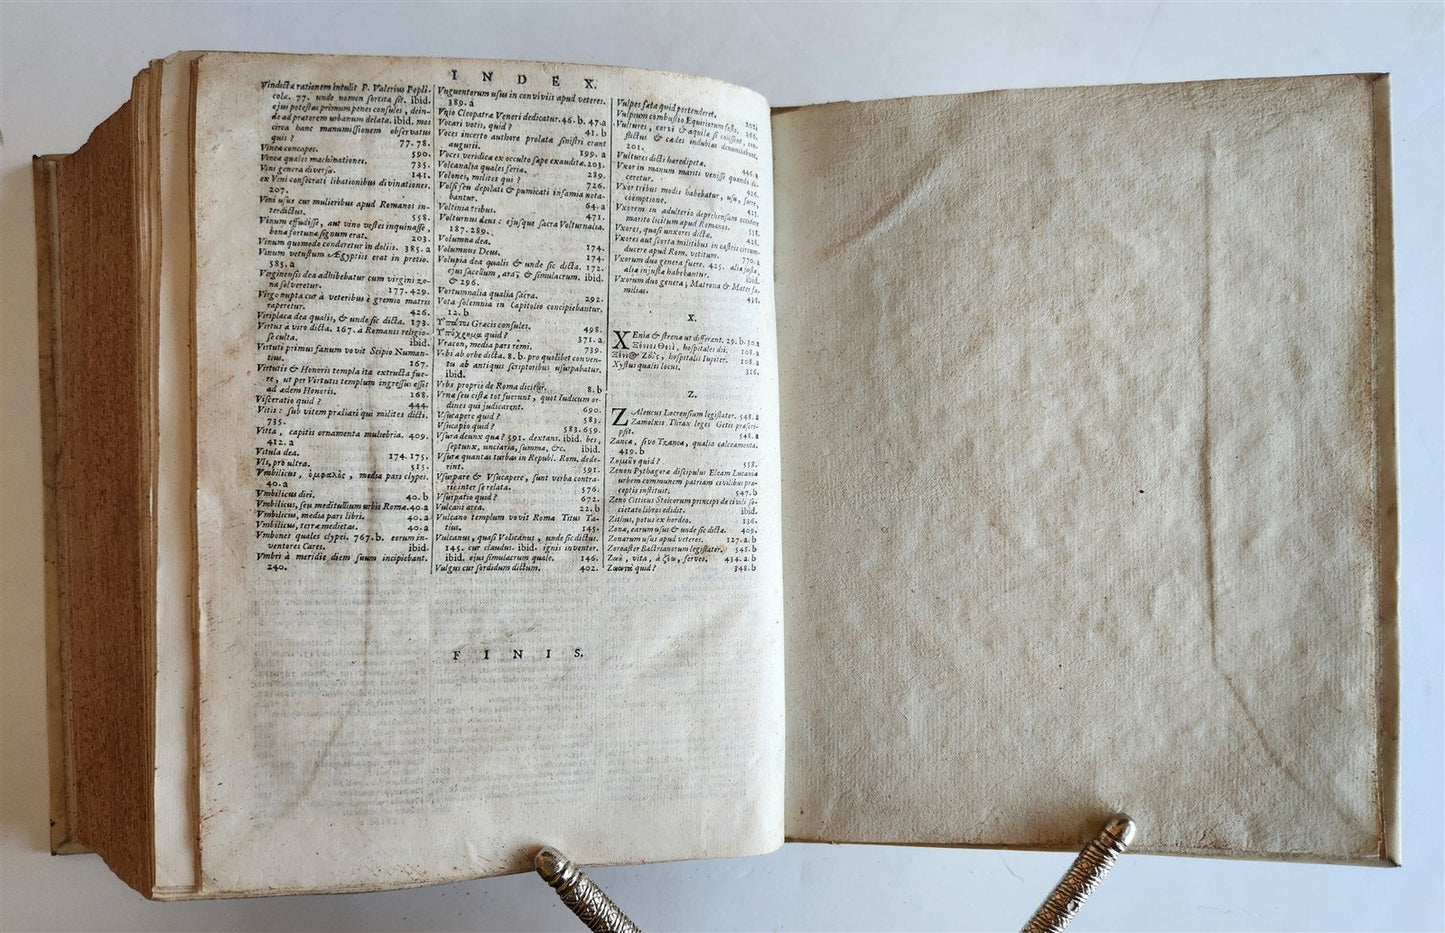 INDEX.
Vindictæ rationem intulit P. Valerius Popli-
cola. 77. unde nomen sortita sit. ibid.
ejus potestas primum penes consules, dein-
de ad prætorem urbanum delata. ibid. mos
circa hanc manumissionem observatus
quis? 77. 78.
Vineæ concapes. 590.
Vineæ quales machinationes. 735.
Vini genera diversa. 141.
ex Vini consecrati libationibus divinationes.
207.
Vini usus cur mulieribus apud Romanos in-
terdictus. 558.
Vinum effudisse, aut vino vestes inquinasse,
bonæ fortunæ signum erat. 203.
Vinum quomodo conderetur in doliis. 385. a
Vinum vetustum Ægyptiis erat in pretio.
585. a
Virginensis dea adhibebatur cum virgini zo-
na solveretur. 177. 429.
Virgo nupta cur à veteribus è gremio matris
raperetur. 426.
Viriplaca dea qualis, & unde sic dicta. 173.
Virtus à viro dicta. 167. à Romanis religio-
se culta. ibid.
Virtuti primus fanum vovit Scipio Numan-
tius. 167.
Virtutis & Honoris templa ita extructa fue-
re, ut per Virtutis templum ingressus esset
ad ædem Honoris. 168.
Visceratio quid? 444.
Vitis: sub vitem præliari qui milites dicti.
735.
Vitta, capitis ornamenta muliebria. 409.
412. a
Vitula dea. 174. 175.
Vls, pro ultra. 515.
Vmbilicus, ὀμφαλὸς, media pars clypei.
40. a
Vmbilicus diei. 40. b
Vmbilicus, seu meditullium urbis Roma. 40. a
Vmbilicus, media pars libri. 40. a
Vmbilicus, terræ medietas. 40. a
Vmbones quales clypei. 767. b. eorum in-
ventores Cares. ibid.
Vmbri à meridie diem suum incipiebant.
240.
Vnguentorum usus in conviviis apud veteres.
389. a
Vnio Cleopatræ Veneri dedicatur. 46. b. 47. a
Vocari votis, quid? 41. b
Voces incerto authore prolatæ sinistri erant
augurii. 199. a
Voces veridicæ ex occulto sæpe exauditæ. 203.
Volcanalia quales feriæ. 289.
Volones, milites qui? 726.
Volsi seu depilati & pumicati infamia nota-
bantur. 64. a
Voltinia tribus. 471.
Volturnus deus: ejusque sacra Volturnalia.
187. 289.
Volumna dea. 174.
Volumnus Deus. 174.
Volupia dea qualis & unde sic dicta. 172.
ejus sacellum, ara, & simulacrum. ibid.
& 296.
Vortumnalia qualia sacra. 292.
Vota solemnia in Capitolio concipiebantur.
12. b
Ὕπατοι Græcis consules. 498.
Ὑπόχρημα quid? 371. a
Vracon, media pars remi. 739.
Vrbs ab orbe dicta. 8. b. pro quolibet conven-
tu ab antiquis scriptoribus usurpabatur.
ibid.
Vrbs propriè de Roma dicitur. 8. b
Vrnæ seu cistæ tot fuerunt, quot Iudicum or-
dines qui judicarent. 690.
Vsucapere quid? 583.
Vsucapio quid? 583. 659.
Vsura deunx quæ? 591. dextans. ibid. bes,
septunx, unciaria, summa, &c. ibid.
Vsuræ quantas turbas in Republ. Rom. dede-
rint. 591.
Vsurpare & Vsucapere, sunt verba contra-
rie inter se relata. 576.
Vsurpatio quid? 672.
Vulcani area. 22. b
Vulcano templum vovit Romæ Titus Ta-
tius. 145.
Vulcanus, quasi Volicanus, unde sic dictus.
145. cur claudus. ibid. ignis inventor.
ibid. ejus simulacrum quale. 146.
Vulgus cur sordidum dictum. 402.
Vulpes fœta quid portenderet. 202.
Vulpium combustio Equiriorum festo. 266.
Vultures, corvi & aquilæ si coissent, con-
flictus & cædes indubias denunciabant.
201.
Vultures dicti hæredipetæ. 446. a
Vxor in manum mariti venisse quando di-
ceretur. 426.
Vxor tribus modis habebatur, usu, farre,
coëmptione. 425.
Vxorem in adulterio deprehensam occidere
marito licitum apud Romanos. 551.
Vxores, quasi unxores dictæ. 428.
Vxores aut scorta militibus in castris circum-
ducere apud Rom. vetitum. 770. a
Vxorum duo genera fuere. 425. alia justæ,
alia injustæ habebantur. ibid.
Vxorum duo genera; Matrona & Mater fa-
milias. 428.
X.
XEnia & strenæ ut differant. 29. b. 30. a
Ξένιοι Θεοὶ, hospitales dii. 108. a
Ξένιος Ζεὺς, hospitalis Iupiter. 108. a
Xystus qualis locus. 316.
Z.
ZAleucus Locrensium legislator. 548. a
Zamolxis Thrax leges Getis præscri-
psit. 548. a
Zancæ, sive Tzancæ, qualia calceamenta.
419. b
Ζημίαν quid? 558.
Zenon Pythagoræ discipulus Eleam Lucaniæ
urbem communem patriam civilibus præ-
ceptis instituit. 547. b
Zeno Citticus Stoicorum princeps de civili so-
cietate libros edidit. ibid.
Zithus, potus ex hordeo. 136.
Zonæ, earum usus & unde sic dictæ. 409.
Zonarum usus apud veteres. 127. a. b
Zoroaster Bactrianorum legislator. 548. b
Ζωὴ, vita, à ζέω, ferveo. 434. a. b
Ζωωτὰ quid? 348. b
FINIS.